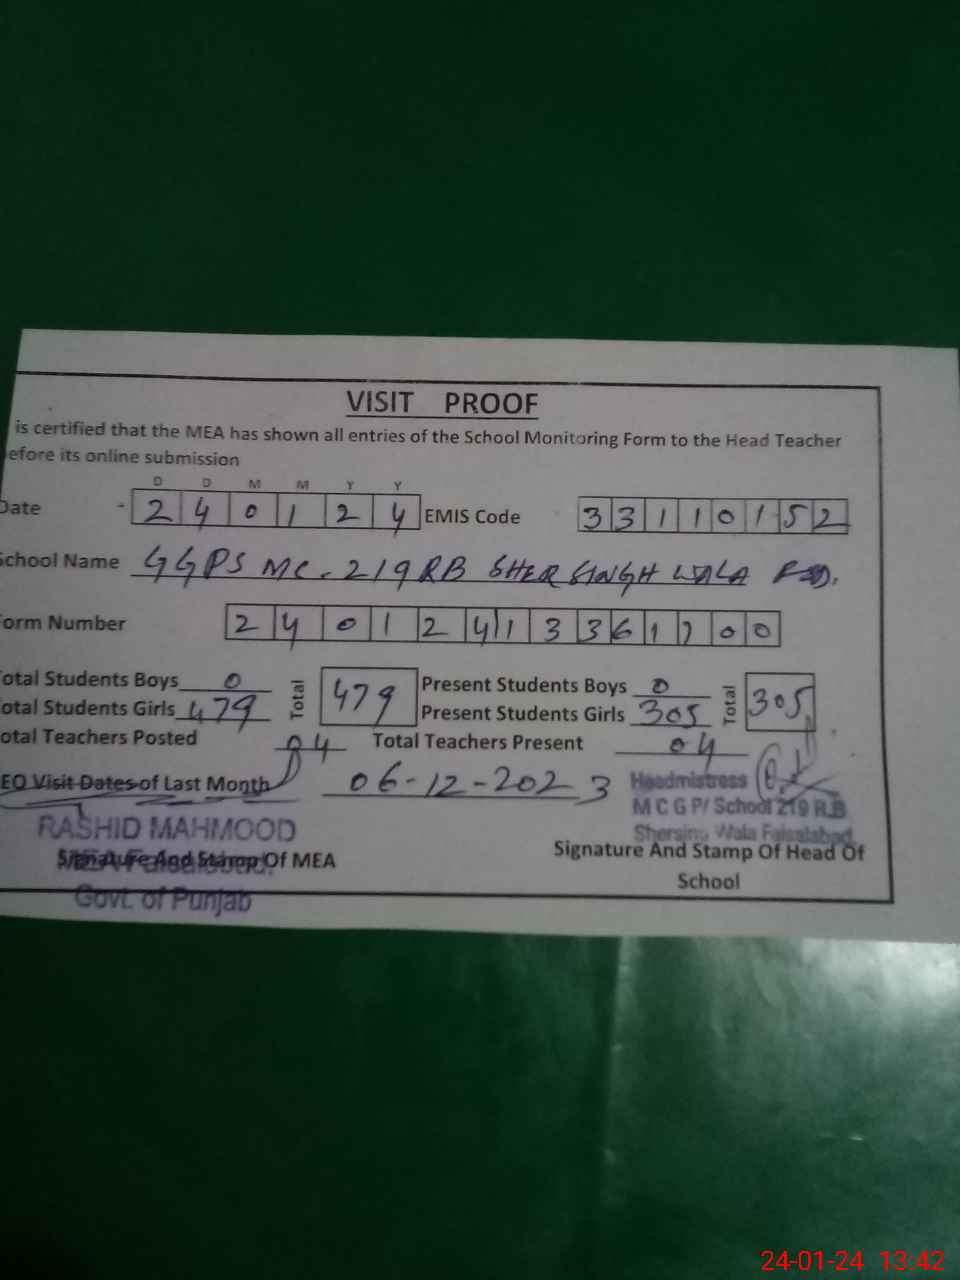 VISIT PROOF
is certified that the MEA has shown all entries of the School Monitoring Form to the Head Teacher
efore its online submission
D D M M Y Y
Date - 2 4 0 1 2 4 EMIS Code 3 3 1 1 0 1 5 2
School Name GGPS MC. 219 RB SHER SINGH WALA FSD.
Form Number 2 4 0 1 2 4 1 3 3 6 1 7 0 0
otal Students Boys 0 Total 479 Present Students Boys 0 Total 305
otal Students Girls 479 Present Students Girls 305
otal Teachers Posted 04 Total Teachers Present 04
EO Visit Dates of Last Month 06-12-2023 Headmistress
M C G P/ School 219 R.B
RASHID MAHMOOD Shersing Wala Faisalabad
Signature And Stamp Of MEA Signature And Stamp Of Head Of
School
MEA Faisalabad.
Govt. of Punjab
24-01-24 13:42